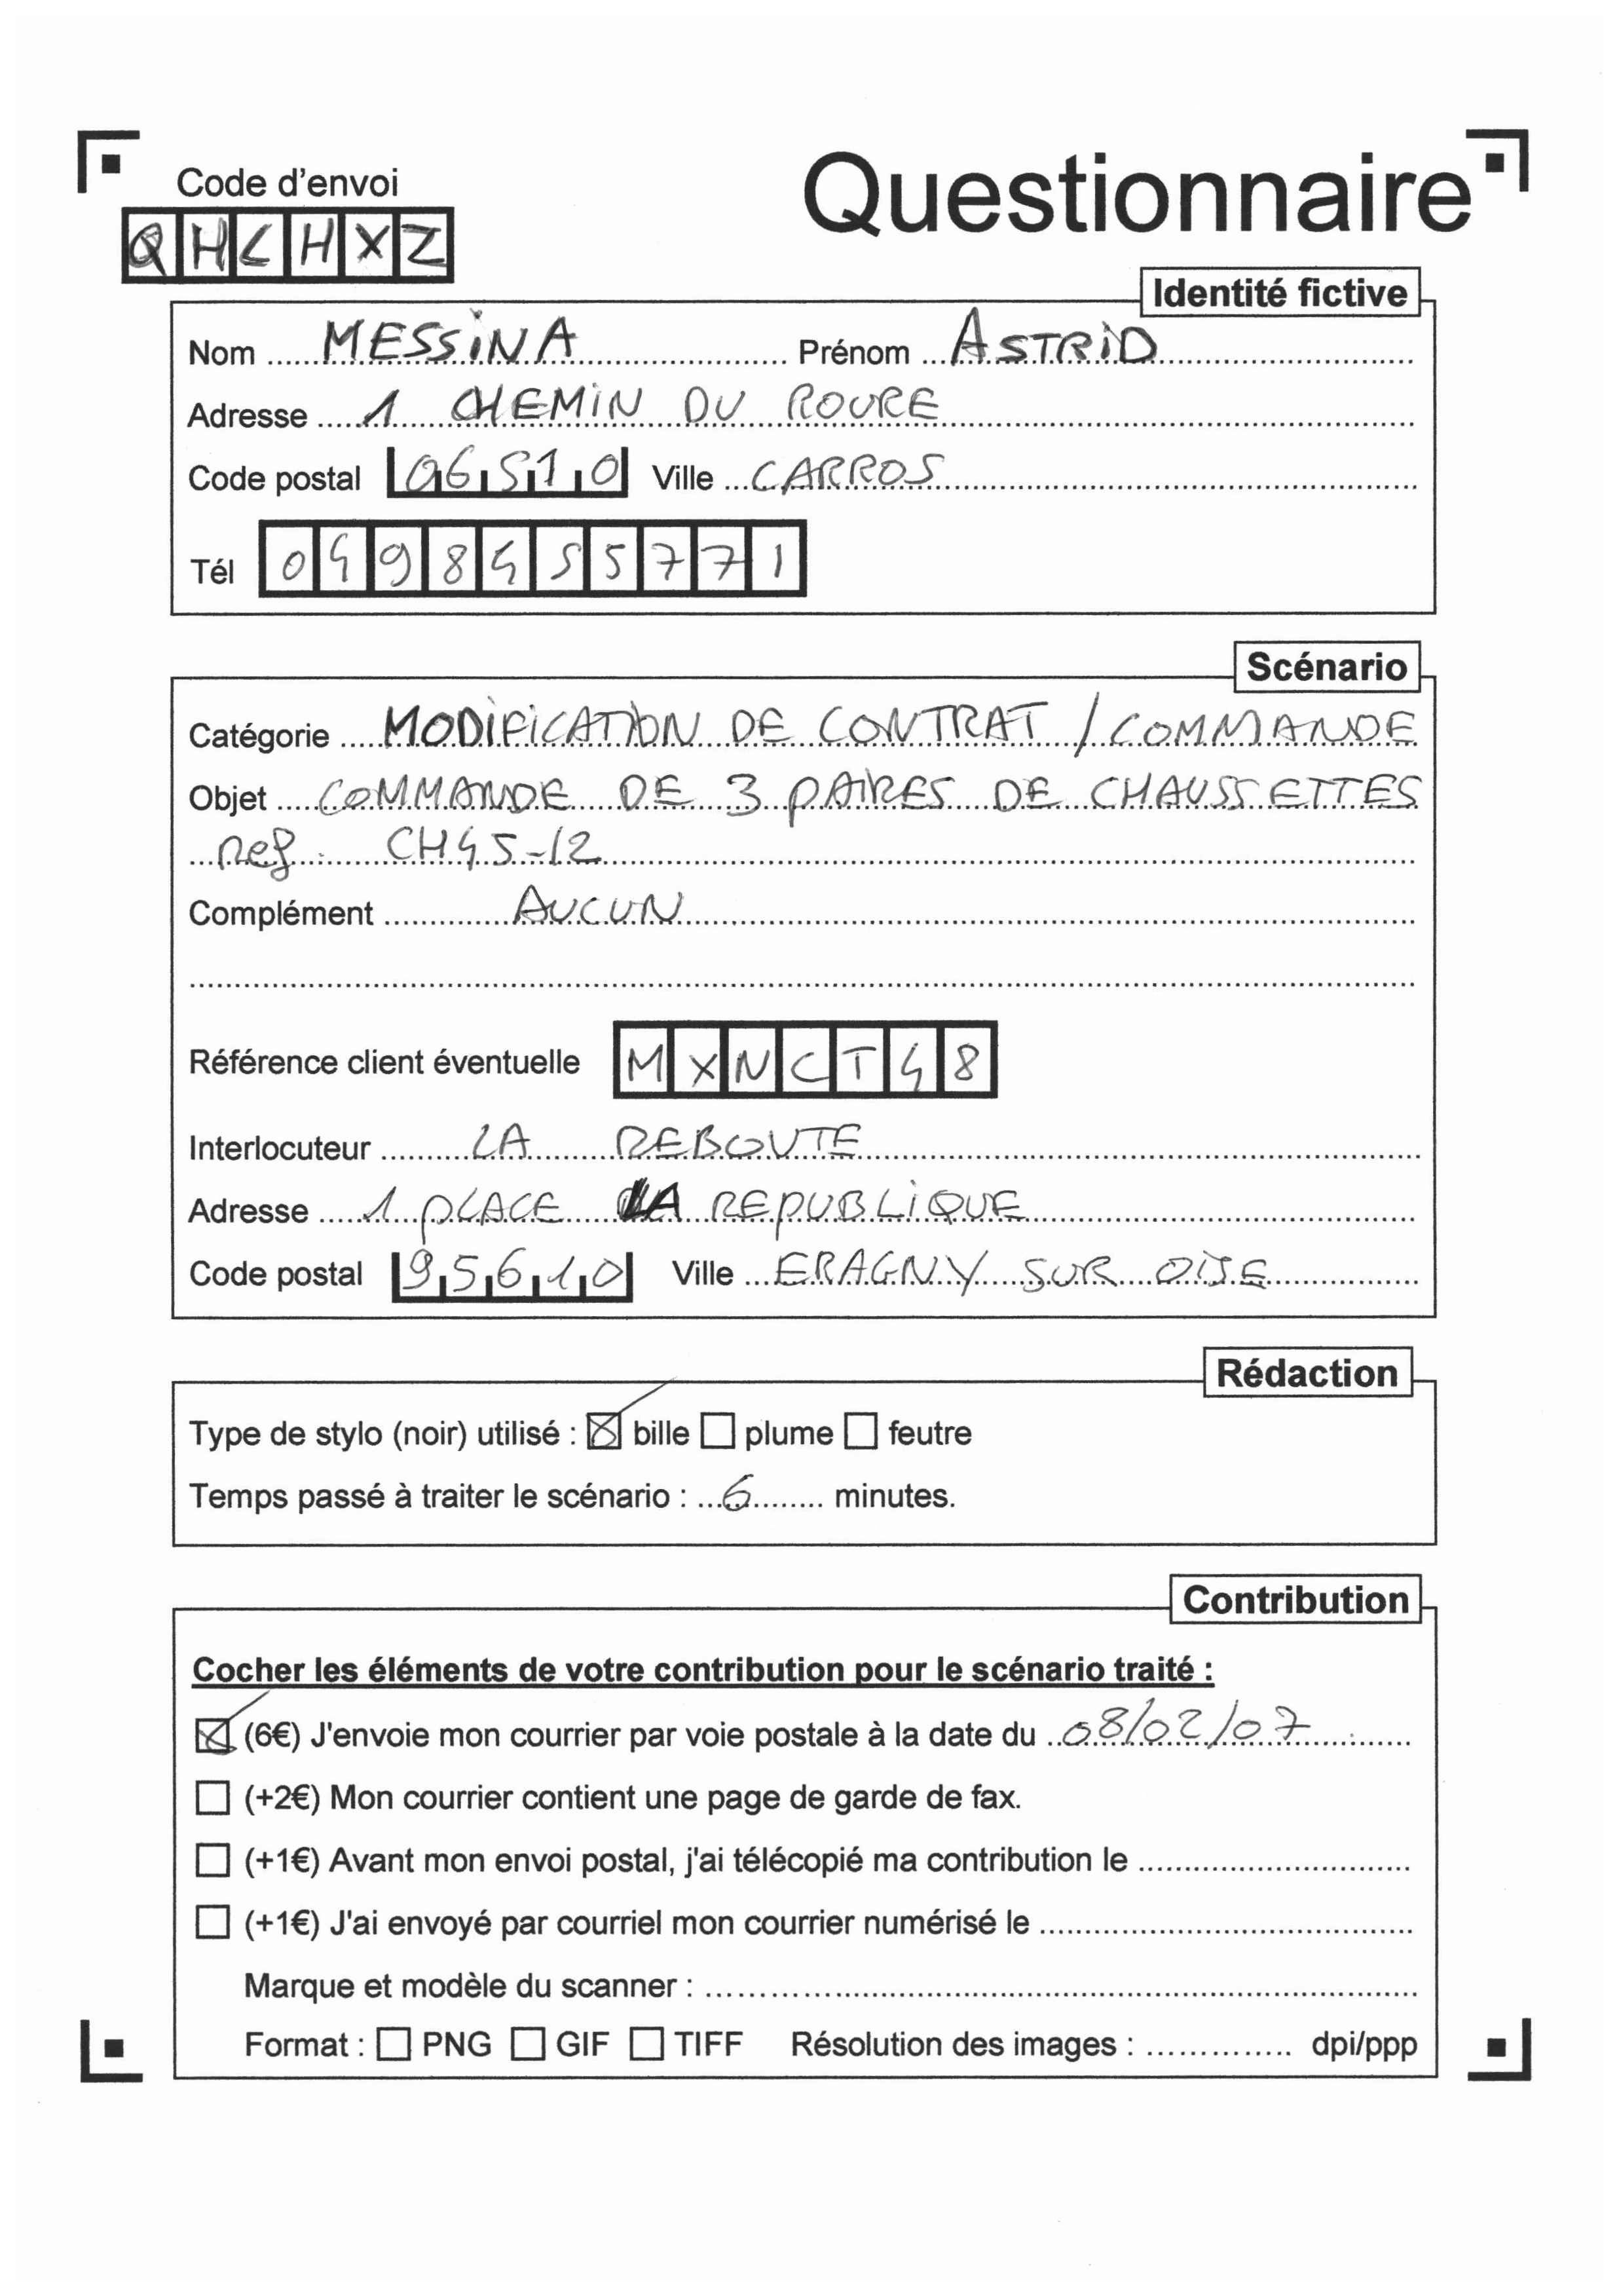 Questionnaire
Code d'envoi
QHLHXZ
Identité fictive
Nom MESSINA Prénom ASTRID
Adresse 1 CHEMIN DU ROURE
Code postal 06510 Ville CARROS
Tél 0498455771
Scénario
Catégorie MODIFICATION DE CONTRAT / COMMANDE
Objet COMMANDE DE 3 PAIRES DE CHAUSSETTES
ref. CH45-12
Complément AUCUN
Référence client éventuelle MXNCT48
Interlocuteur LA REBOUTE
Adresse 1 PLACE LA REPUBLIQUE
Code postal 95610 Ville ERAGNY SUR OISE
Rédaction
Type de stylo (noir) utilisé : bille plume feutre
Temps passé à traiter le scénario : 6 minutes.
Contribution
Cocher les éléments de votre contribution pour le scénario traité :
(6€) J'envoie mon courrier par voie postale à la date du 08/02/07
(+2€) Mon courrier contient une page de garde de fax.
(+1€) Avant mon envoi postal, j'ai télécopié ma contribution le
(+1€) J'ai envoyé par courriel mon courrier numérisé le
Marque et modèle du scanner :
Format : PNG GIF TIFF Résolution des images : dpi/ppp